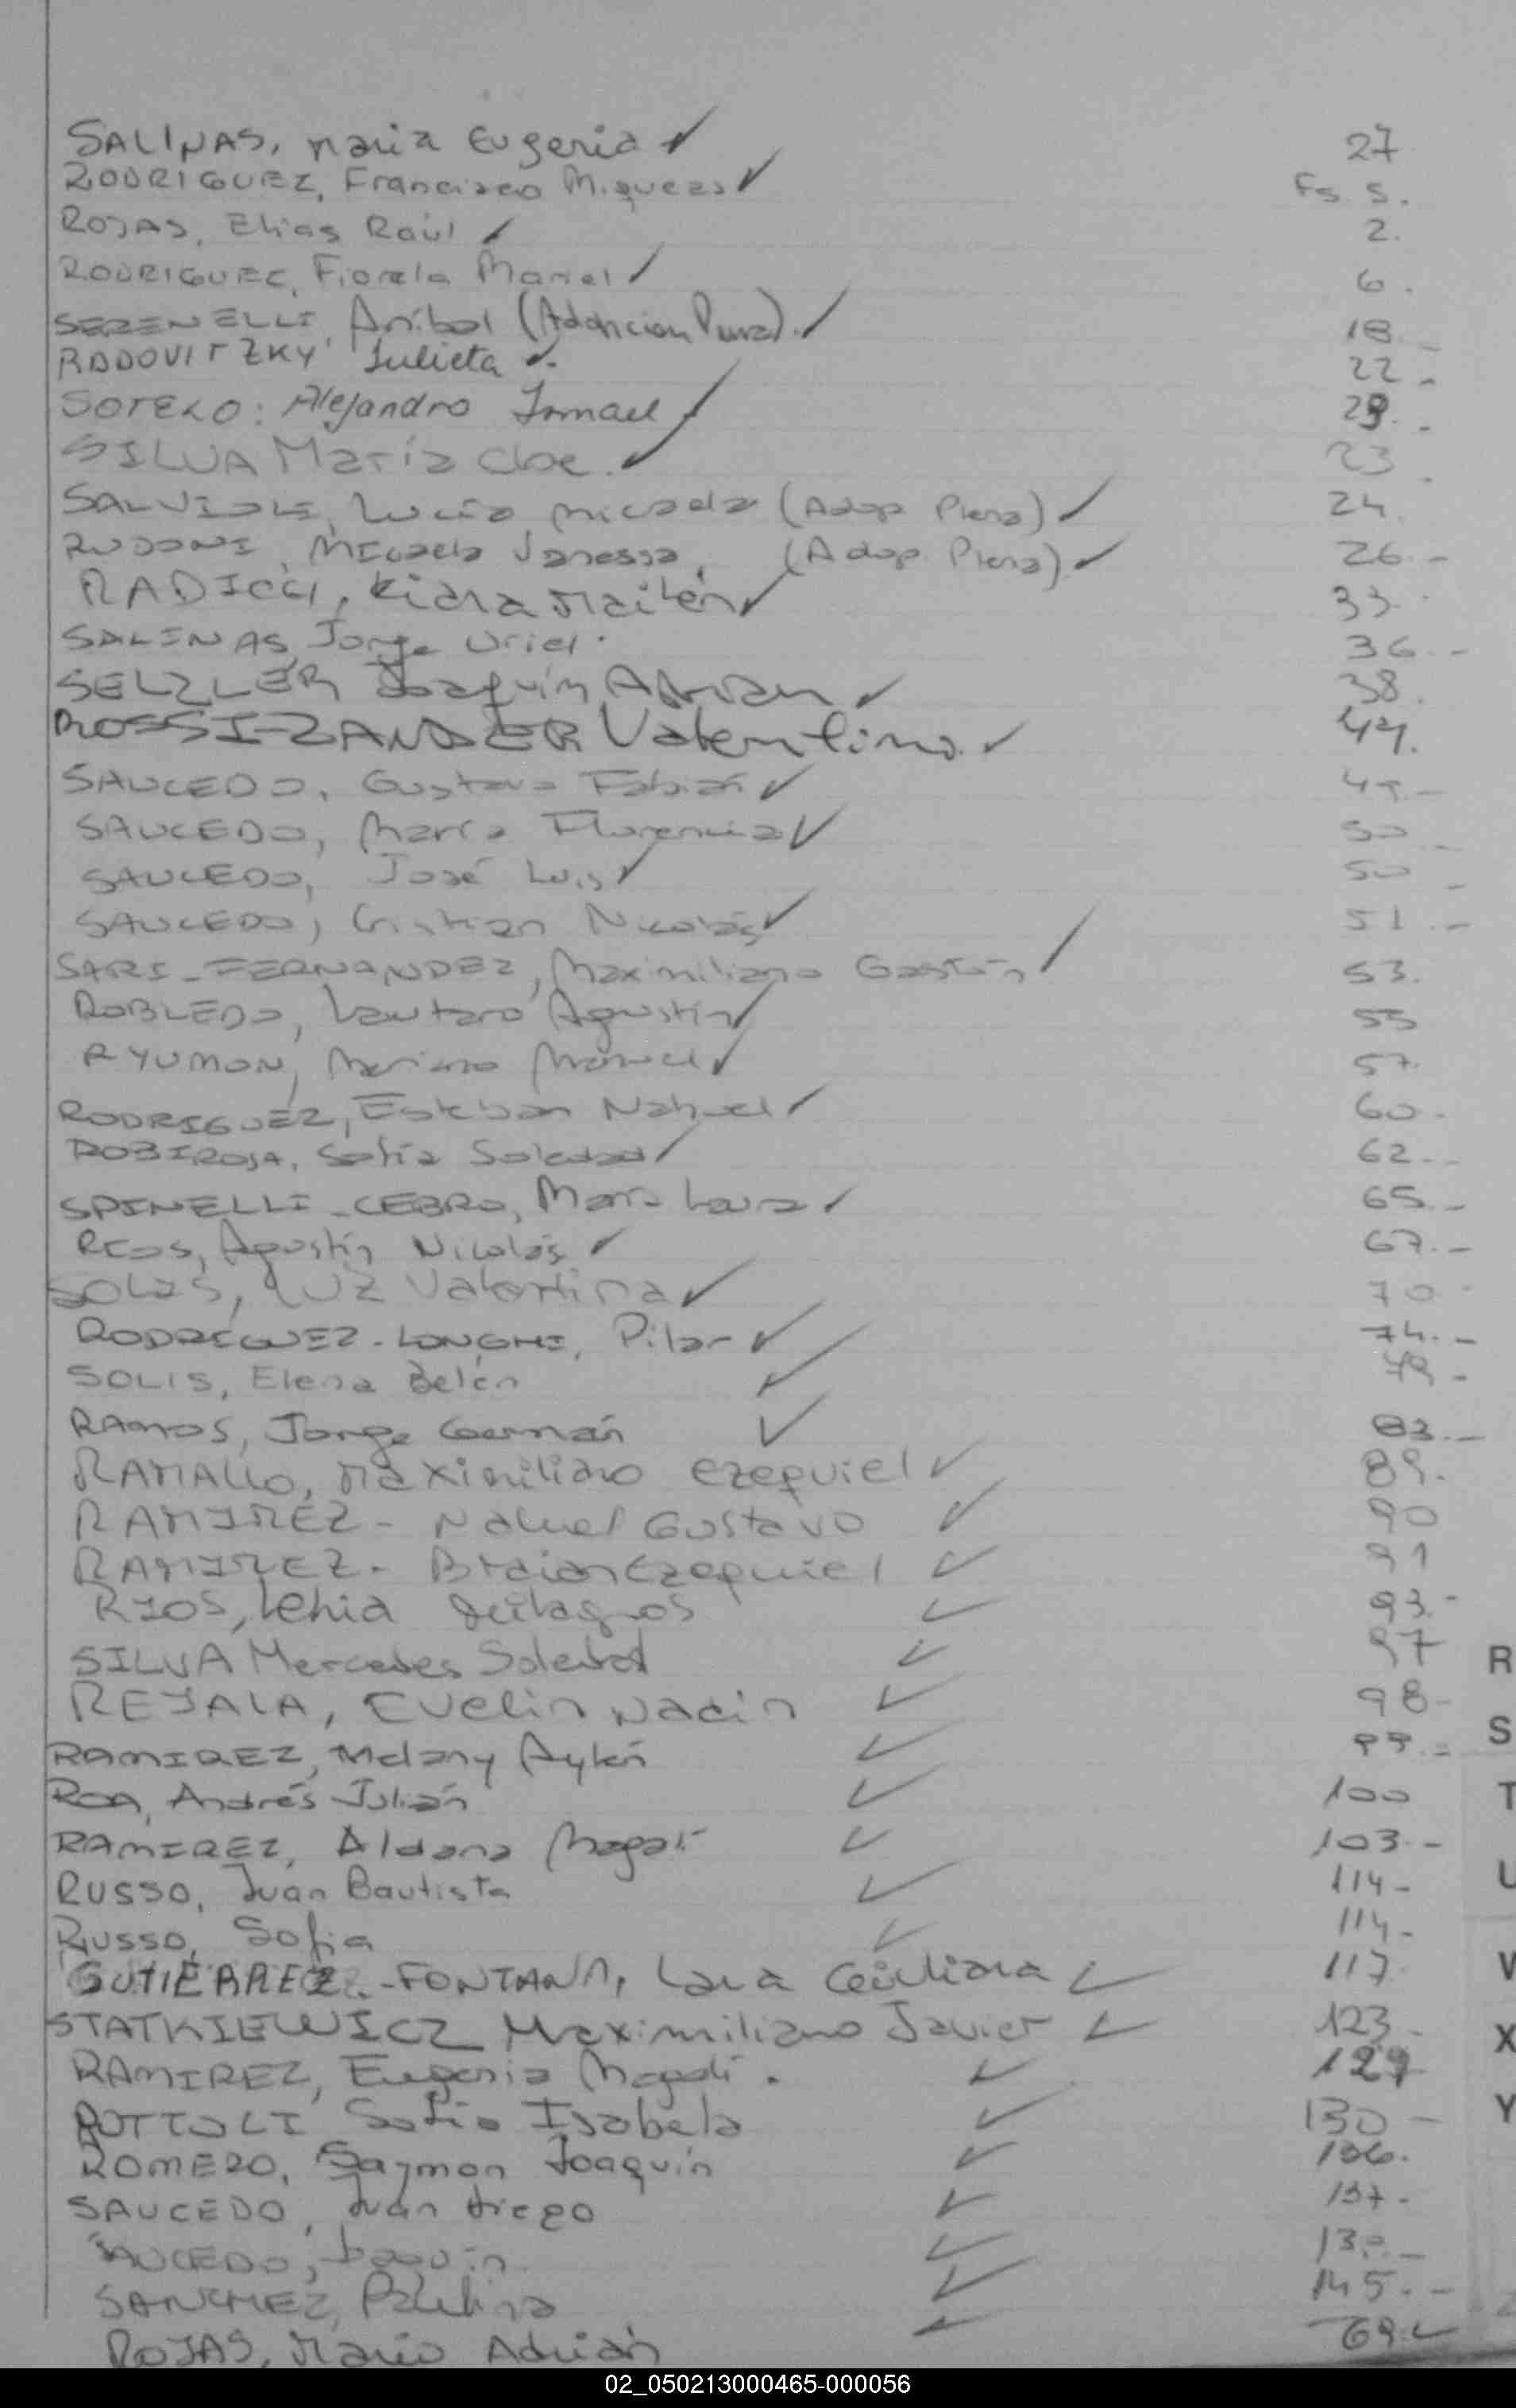 SALINAS, Maria Eugenia ✓ 27
RODRIGUEZ, Francisco Miqueas ✓ Fs. 5.
ROJAS, Elias Raúl ✓ 2.
RODRIGUEZ, Fiorela Mariel ✓ 6.
SERENELLI, Aníbal (Adopcion Plena). ✓ 18.-
RADOVITZKY Julieta ✓. 22.-
SOTELO: Alejandro Ismael ✓ 29.-
SILVA María Cloe. ✓ 23.
SALVIOLE, Lucía Micaela (Adop Plena) ✓ 24.
RUDONI, Micaela Vanessa, (Adop. Plena) ✓ 26.-
RADICCI, Kiara Mailén ✓ 33.
SALINAS, Jorge Uriel. 36.-
SELZLER Joaquín Adrian ✓ 38.
ROSSI-ZANDER Valentino. ✓ 44.
SAUCEDO, Gustavo Fabián ✓ 49.-
SAUCEDO, María Florencia ✓ 50.-
SAUCEDO, José Luis ✓ 50.-
SAUCEDO, Cristian Nicolás ✓ 51.-
SARI-FERNANDEZ, Maximiliano Gastón ✓ 53.
ROBLEDO, Lautaro Agustín ✓ 55
RYUMON, Mariano Manuel ✓ 57.
RODRIGUEZ, Esteban Nahuel ✓ 60.-
ROBIROSA, Sofía Soledad ✓ 62.-
SPINELLI-CEBRO, María Laura ✓ 65.-
RIOS, Agustín Nicolás ✓ 67.-
SOLIS, Luz Valentina ✓ 70.-
RODRIGUEZ-LONGHI, Pilar ✓ 74.-
SOLIS, Elena Belén ✓ 79.-
RAMOS, Jorge Germán ✓ 83.-
RAMALLO, Maximiliano Ezequiel ✓ 89.
RAMIREZ- Nahuel Gustavo ✓ 90
RAMIREZ- Braian Ezequiel ✓ 91
RIOS, Lehia Milagros ✓ 93.-
SILVA Mercedes Soledad ✓ 97
REJALA, Evelin Nadin ✓ 98-
RAMIREZ, Melany Aylén ✓ 99.-
ROA, Andrés Julián ✓ 100
RAMIREZ, Aldana Magalí ✓ 103.-
RUSSO, Juan Bautista ✓ 114-
RUSSO, Sofia ✓ 114-
GUTIERREZ.-FONTANA, Lara Giuliana ✓ 117.
STATKIEWICZ Maximiliano Javier ✓ 123.-
RAMIREZ, Eugenia Magalí. ✓ 129
POTTOLI Sofía Isabela ✓ 130-
ROMERO, Saymon Joaquín ✓ 136.
SAUCEDO, Juan Diego ✓ 137.
SAUCEDO, Joaquín ✓
SANCHEZ, Paulina ✓ 145.-
ROJAS, Mario Adrián ✓ 69.
R
S
T
U
V
X
Y
02_050213000465-000056